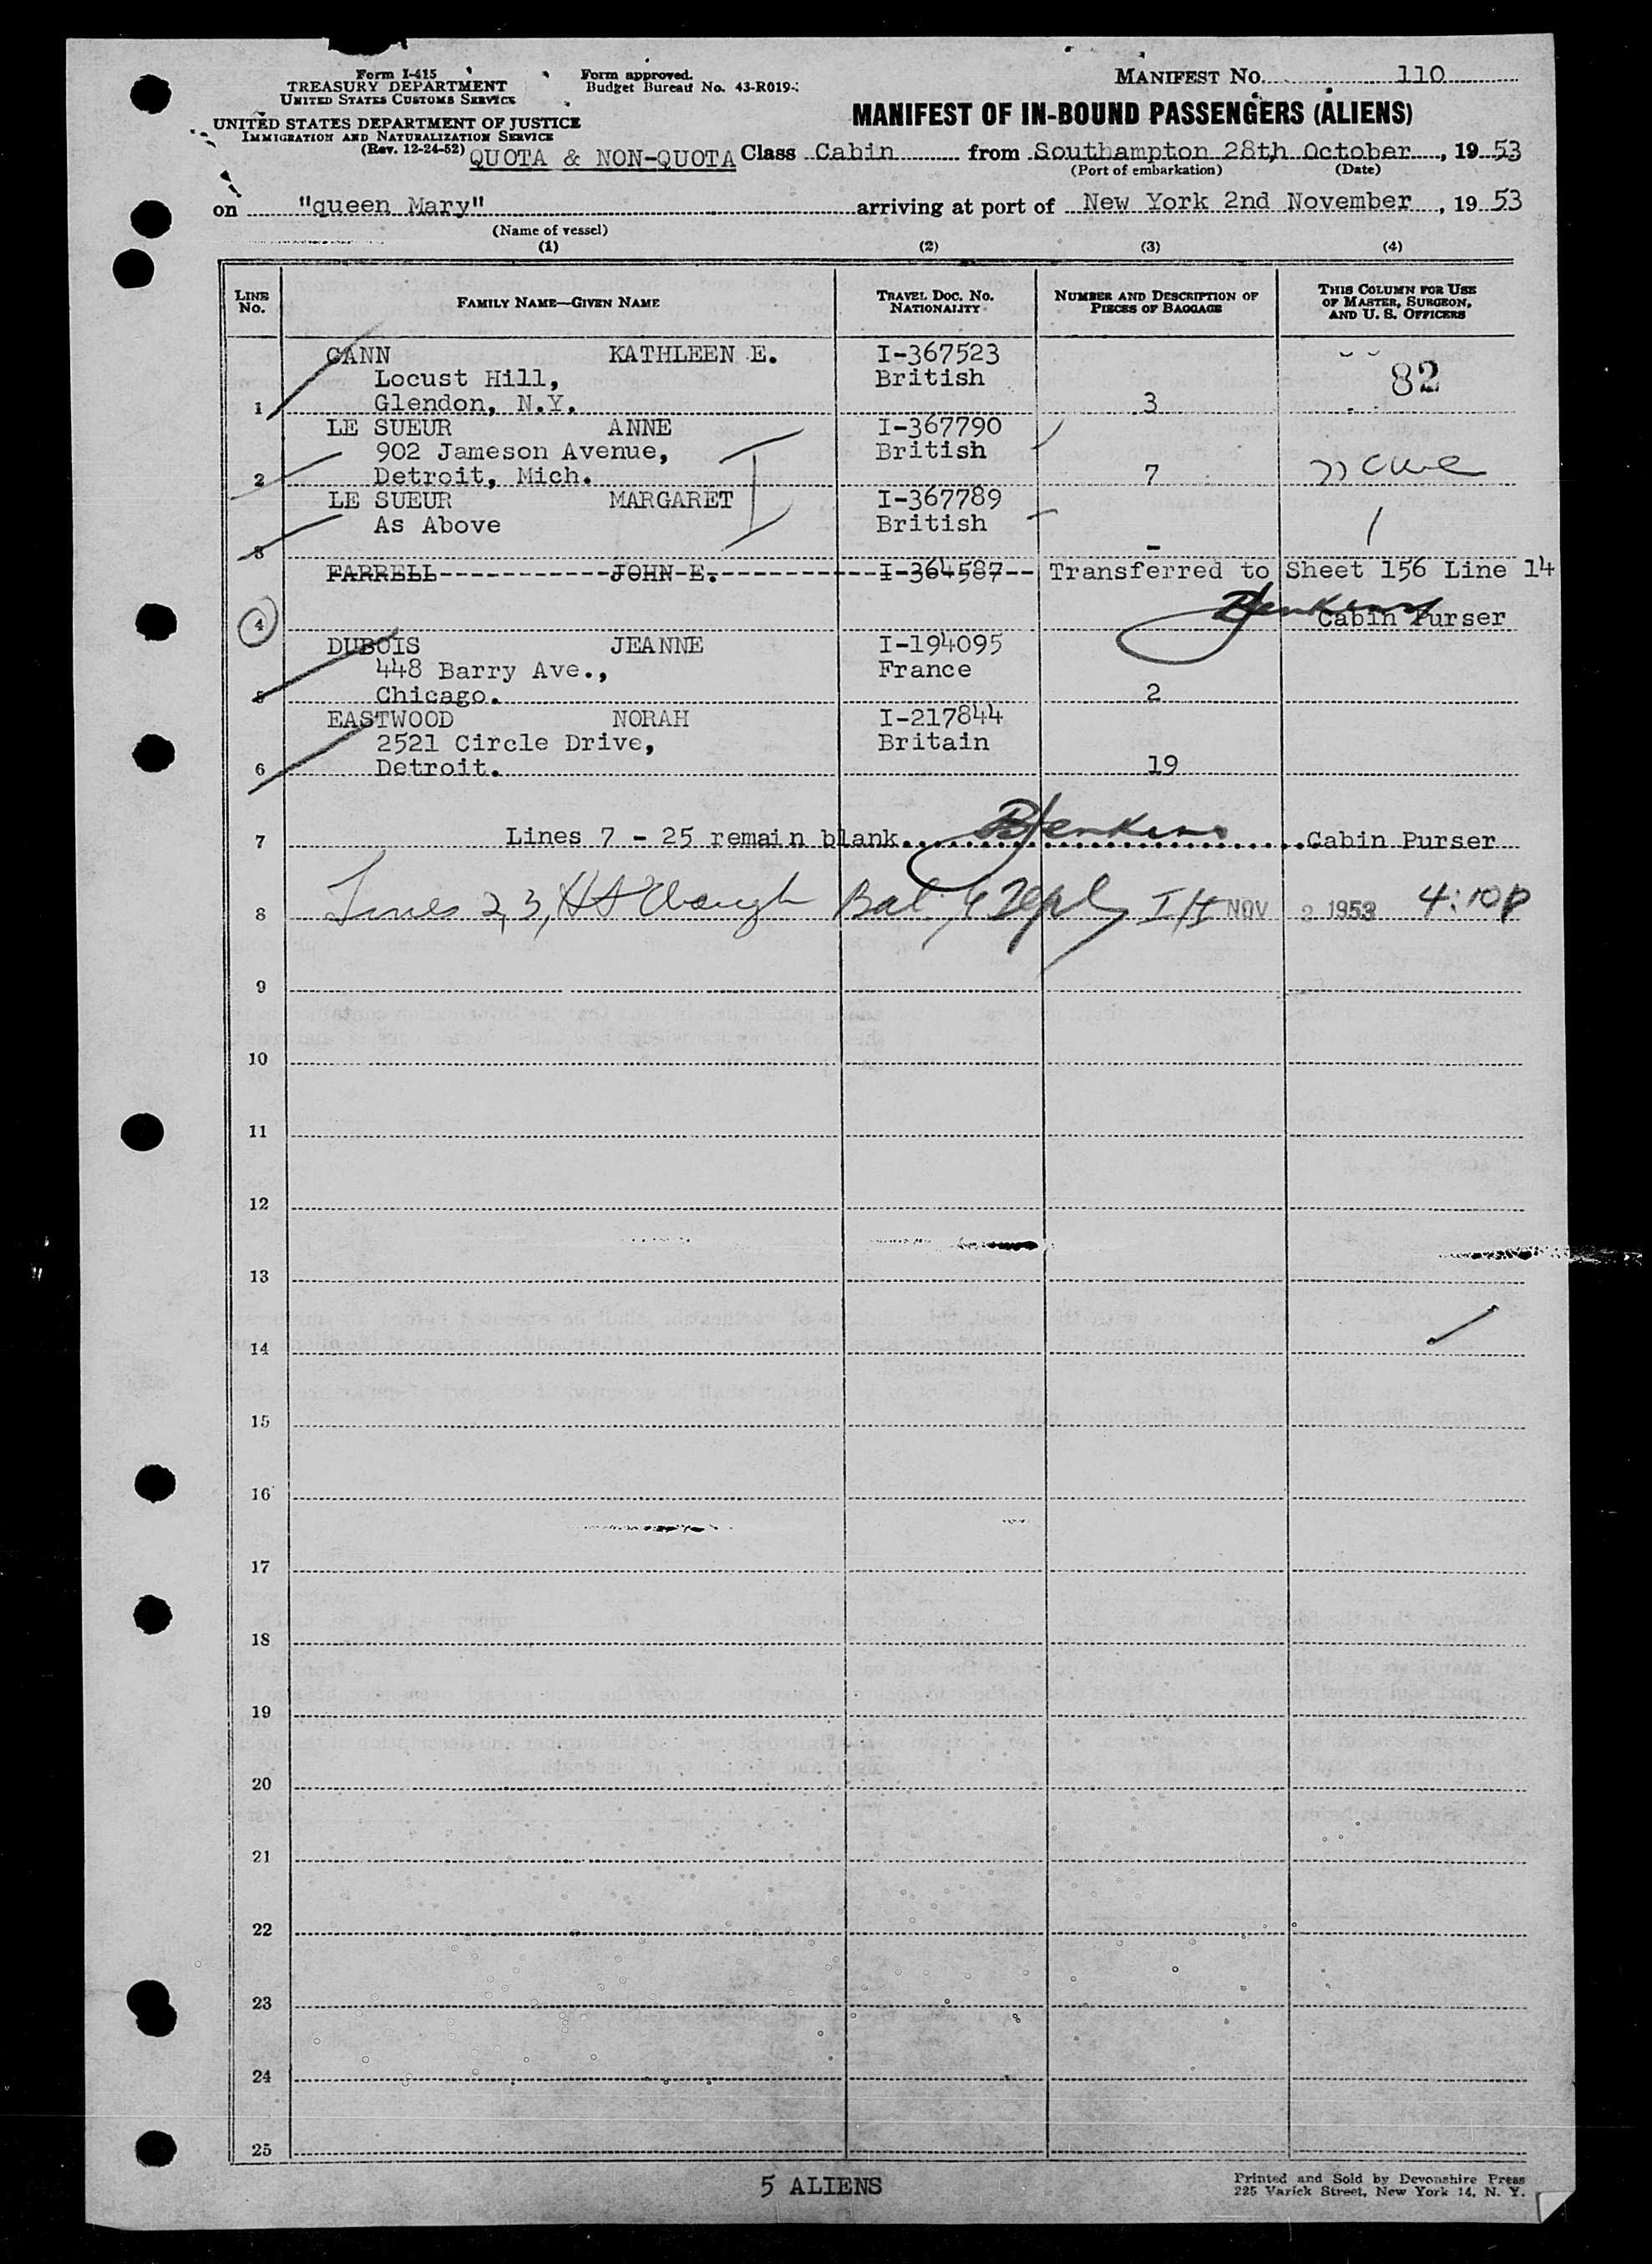 Form I-415
TREASURY DEPARTMENT
UNITED STATES CUSTOMS SERVICE
UNITED STATES DEPARTMENT OF JUSTICE
IMMIGRATION AND NATURALIZATION SERVICE
(Rev. 12-24-52)
Form approved.
Budget Bureau No. 43-R019-
MANIFEST NO. 110
MANIFEST OF IN-BOUND PASSENGERS (ALIENS)
QUOTA & NON-QUOTA Class Cabin from Southampton 28th October, 19 53
(Port of embarkation) (Date)
on "queen Mary" arriving at port of New York 2nd November, 19 53
(Name of vessel)
(1) (2) (3) (4)
LINE No. FAMILY NAME—GIVEN NAME TRAVEL DOC. NO. NATIONALITY NUMBER AND DESCRIPTION OF PIECES OF BAGGAGE THIS COLUMN FOR USE OF MASTER, SURGEON, AND U. S. OFFICERS
CANN KATHLEEN E. I-367523
Locust Hill, British 82
1 Glendon, N.Y. 3
LE SUEUR ANNE I-367790
902 Jameson Avenue, British
2 Detroit, Mich. 7
LE SUEUR MARGARET I-367789
As Above British
3 -
FARRELL JOHN E. I-364587 Transferred to Sheet 156 Line 14
4 BJenkins Cabin Purser
DUBOIS JEANNE I-194095
448 Barry Ave., France
5 Chicago. 2
EASTWOOD NORAH I-217844
2521 Circle Drive, Britain
6 Detroit. 19
7 Lines 7 - 25 remain blank. BJenkins Cabin Purser
8 Lines 2, 3, Bal. I/I NOV 2 1953 4:10p
9
10
11
12
13
14
15
16
17
18
19
20
21
22
23
24
25
5 ALIENS
Printed and Sold by Devonshire Press
225 Varick Street, New York 14, N. Y.